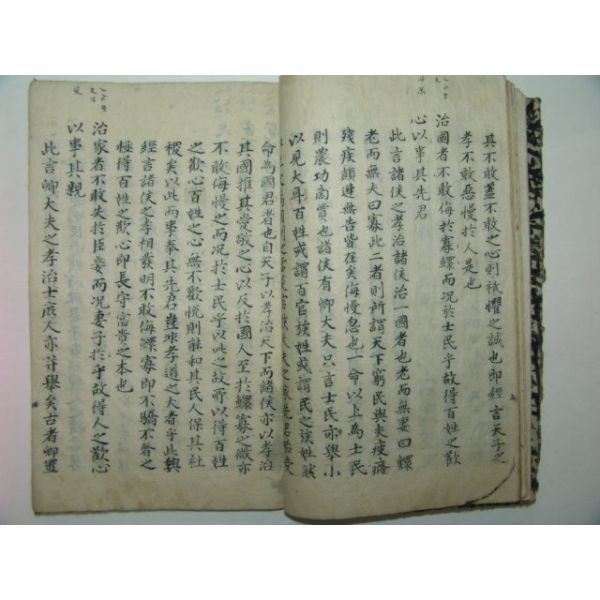 其不敢蓋不敢之心則祇懼之誠也即經言天子之
孝不敢惡慢於人是也
治國者不敢侮於鰥寡而况於士民乎故得百姓之歡
心以事其先君
此言諸侯之孝治諸侯治一國者也老而無妻曰鰥
老而無夫曰寡此二者則所謂天下窮民與夫疲癃
殘疾顚連無告皆在矣侮慢忽也一命以上為士民
則農功商賈也諸侯有卿大夫只言士民亦舉小
以見大耳百姓或謂百官族姓或謂民之族姓
命為國君者也自天子以孝治天下而諸侯亦以孝治
其國推其愛敬之心以及於國人至於鰥寡之微亦
不敢侮慢之而况於士民乎以此之故所以得百姓
之歡心百姓之心無不歡悅則能和其民人保其社
稷矣以此而事奉其先君豈非孝道之大者乎此與
經言諸侯之孝相發明不敢侮鰥寡即不驕不奢之
極得百姓之歡心即長守富貴之本也
治家者不敢失於臣妾而况妻子乎故得人之歡心
以事其親
此言卿大夫之孝治士庶人亦并舉矣古者卿置